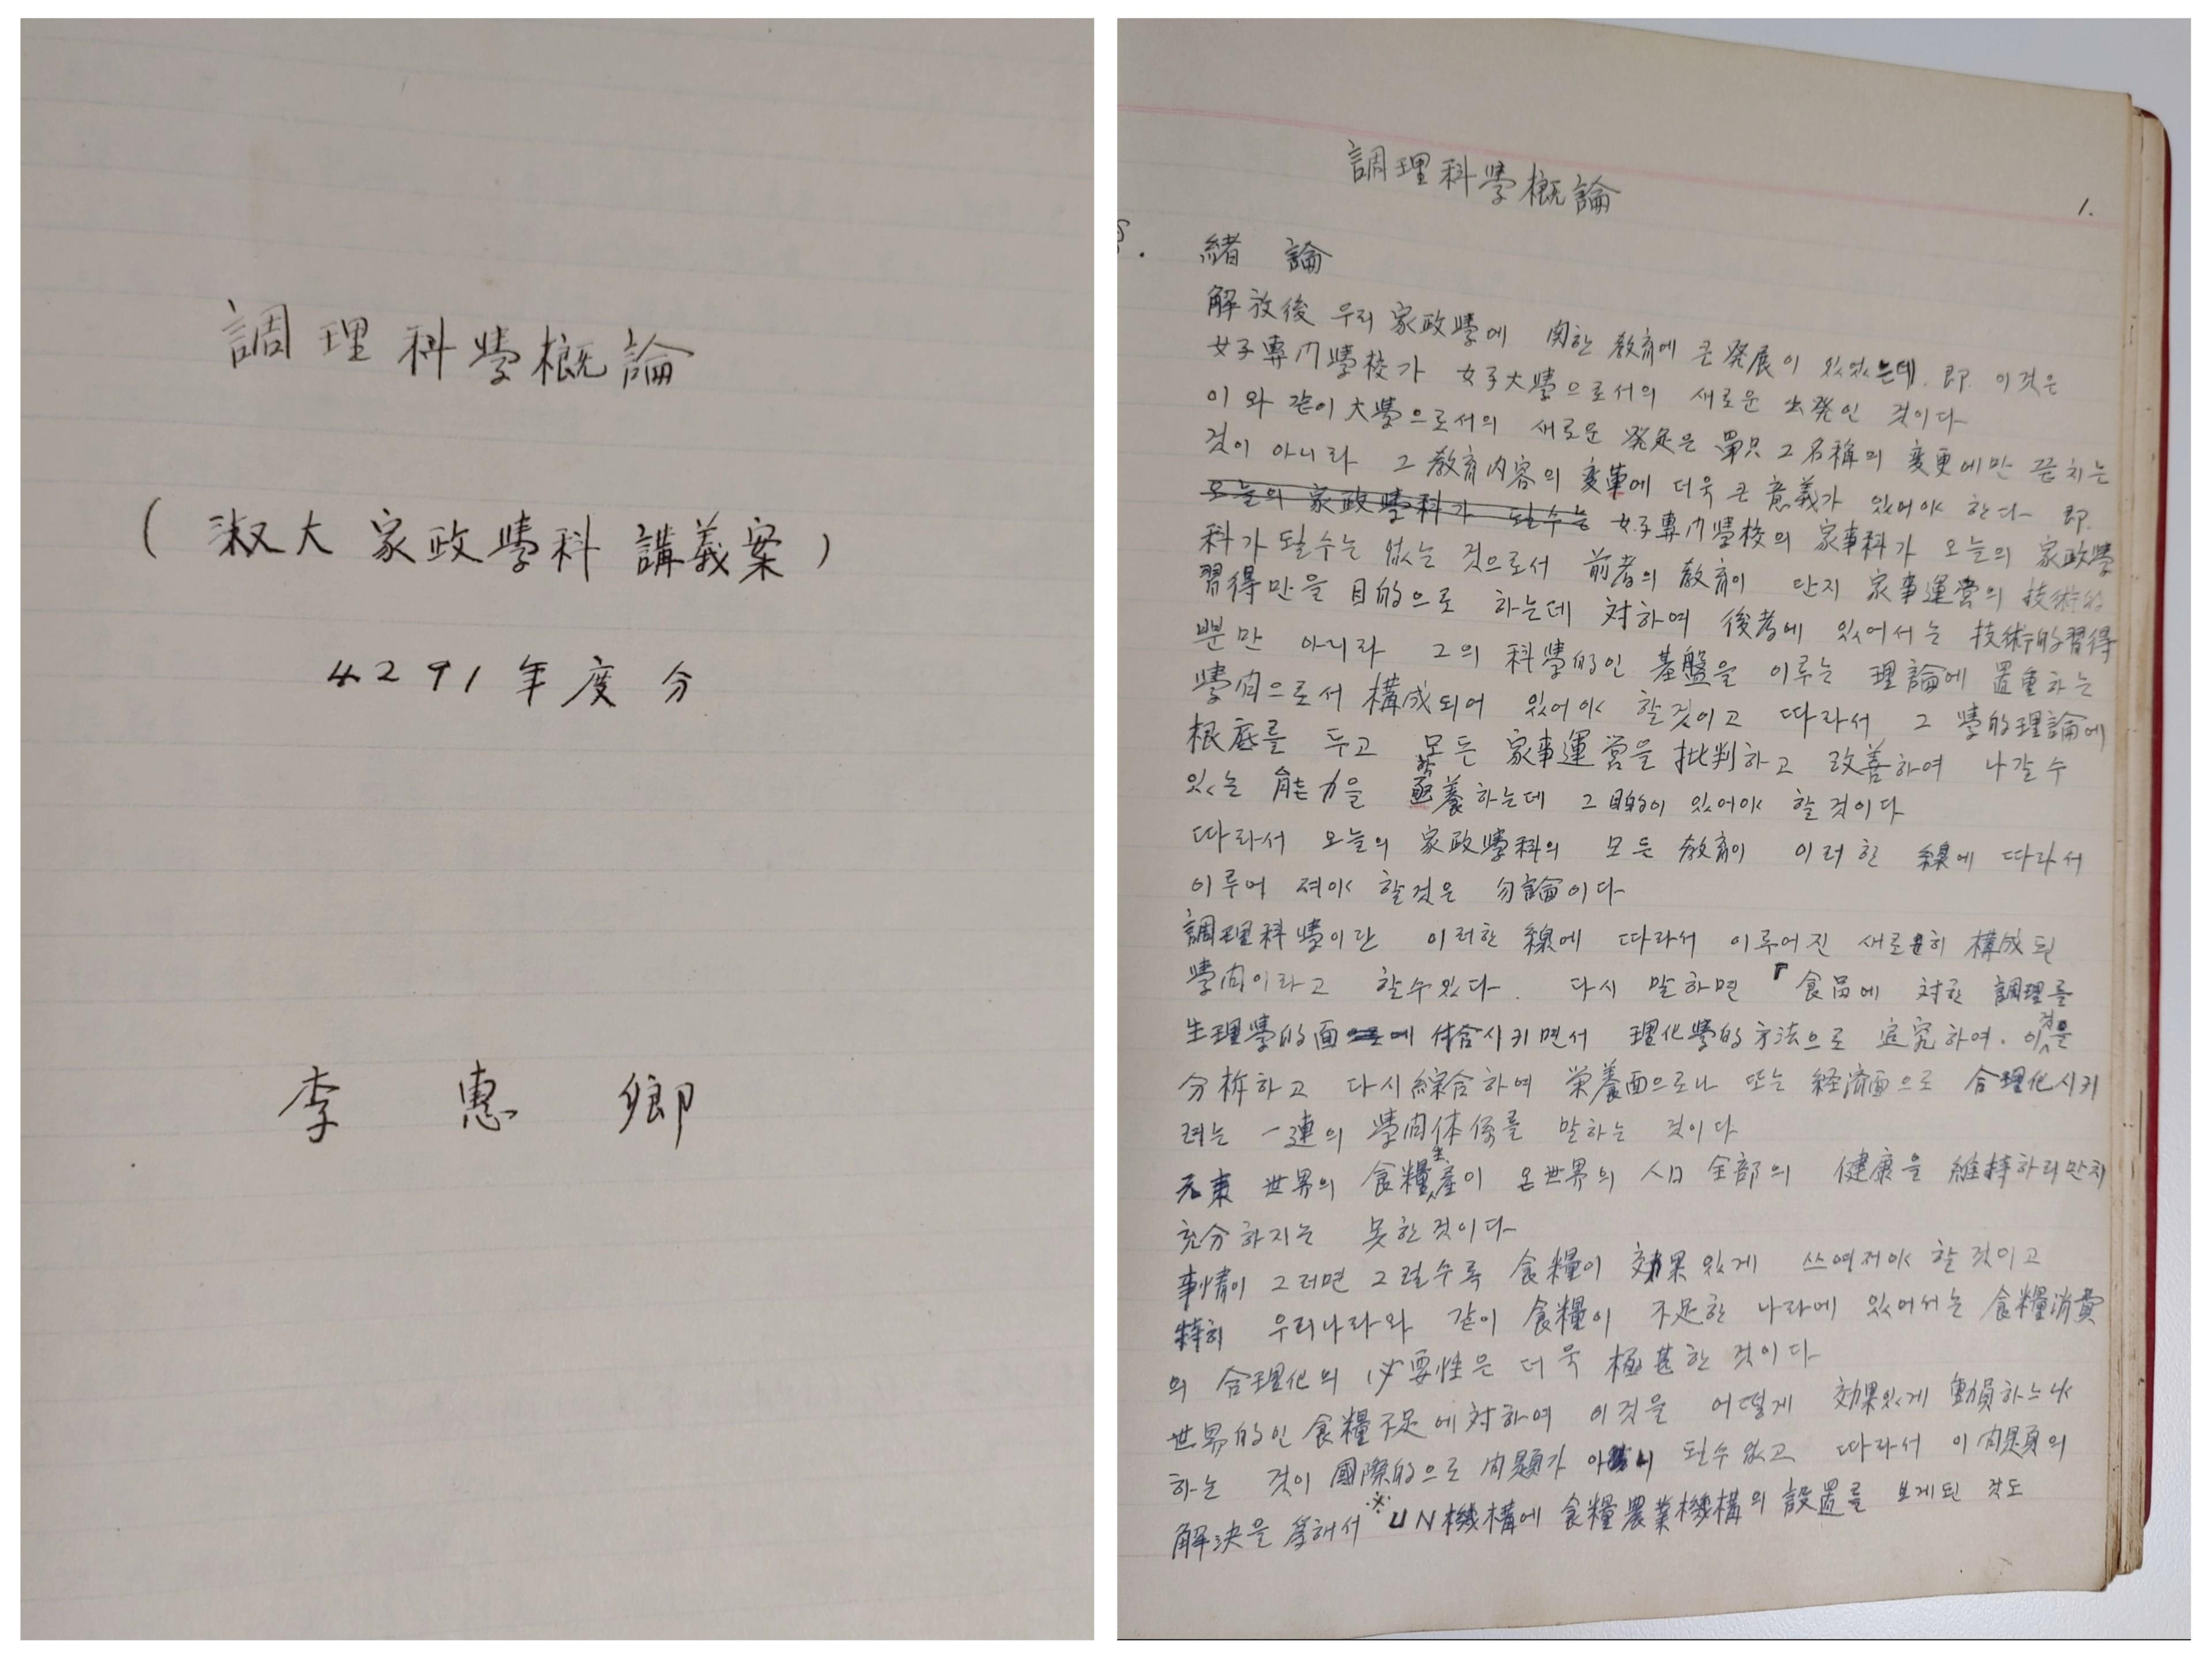 調理科學概論
(淑大 家政學科 講義案)
4291年度分
李惠鄕
調理科學概論
1.
緖論
解放後 우리 家政學에 関한 敎育에 큰 発展이 있었는데. 即. 이것은
女子專門學校가 女子大學으로서의 새로운 出発인 것이다
이와 같이 大學으로서의 새로운 発足은 單只 그 名稱의 変更에만 끝치는
것이 아니라 그 敎育内容의 変革에 더욱 큰 意義가 있어야 한다 即.
오늘의 家政學科가 될수는 女子專門學校의 家事科가 오늘의 家政學
科가 될수는 없는 것으로서 前者의 敎育이 단지 家事運営의 技術的
習得만을 目的으로 하는데 対하여 後者에 있어서는 技術的習得
뿐만 아니라 그의 科學的인 基盤을 이루는 理論에 置重하는
學问으로서 構成되어 있어야 할것이고 따라서 그 學的理論에
根底를 두고 모든 家事運営을 批判하고 改善하여 나갈 수
있는 能力을 養하는데 그 目的이 있어야 할 것이다
따라서 오늘의 家政學科의 모든 敎育이 이러한 線에 따라서
이루어 져야 할것은 勿論이다
調理科學이란 이러한 線에 따라서 이루어진 새로히 構成된
學问이라고 할수있다. 다시 말하면 「食品에 対한 調理를
生理學的面에 结合시키면서 理化學的方法으로 追究하여. 이것을
分析하고 다시 綜合하여 栄養面으로나 또는 経済面으로 合理化시키
려는 一連의 學问体係를 말하는 것이다
元来 世界의 食糧生産이 온世界의 人口 全部의 健康을 維持하리만치
充分하지는 못한것이다
事情이 그러면 그럴수록 食糧이 効果있게 쓰여져야 할것이고
特히 우리나라와 같이 食糧이 不足한 나라에 있어서는 食糧消費
의 合理化의 必要性은 더욱 極甚한 것이다
世界的인 食糧不足에 対하여 이것을 어떻게 効果있게 動員하느냐
하는 것이 國際的으로 问題가 아니 될수 없고 따라서 이 问題의
解決을 爲해서 ※UN機構에 食糧農業機構의 設置를 보게된 것도